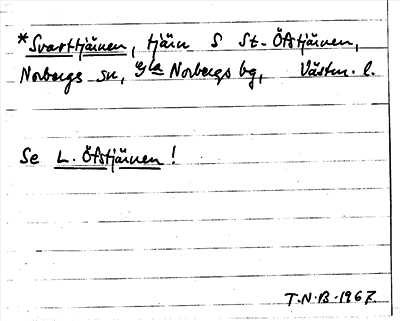 *Svarttjärnen, tjärn S St. Öfstjärnen,
Norbergs sn, Gla Norbergs bg, Västm. l.
Se L. Öfstjärnen!
T.N.B. 1967